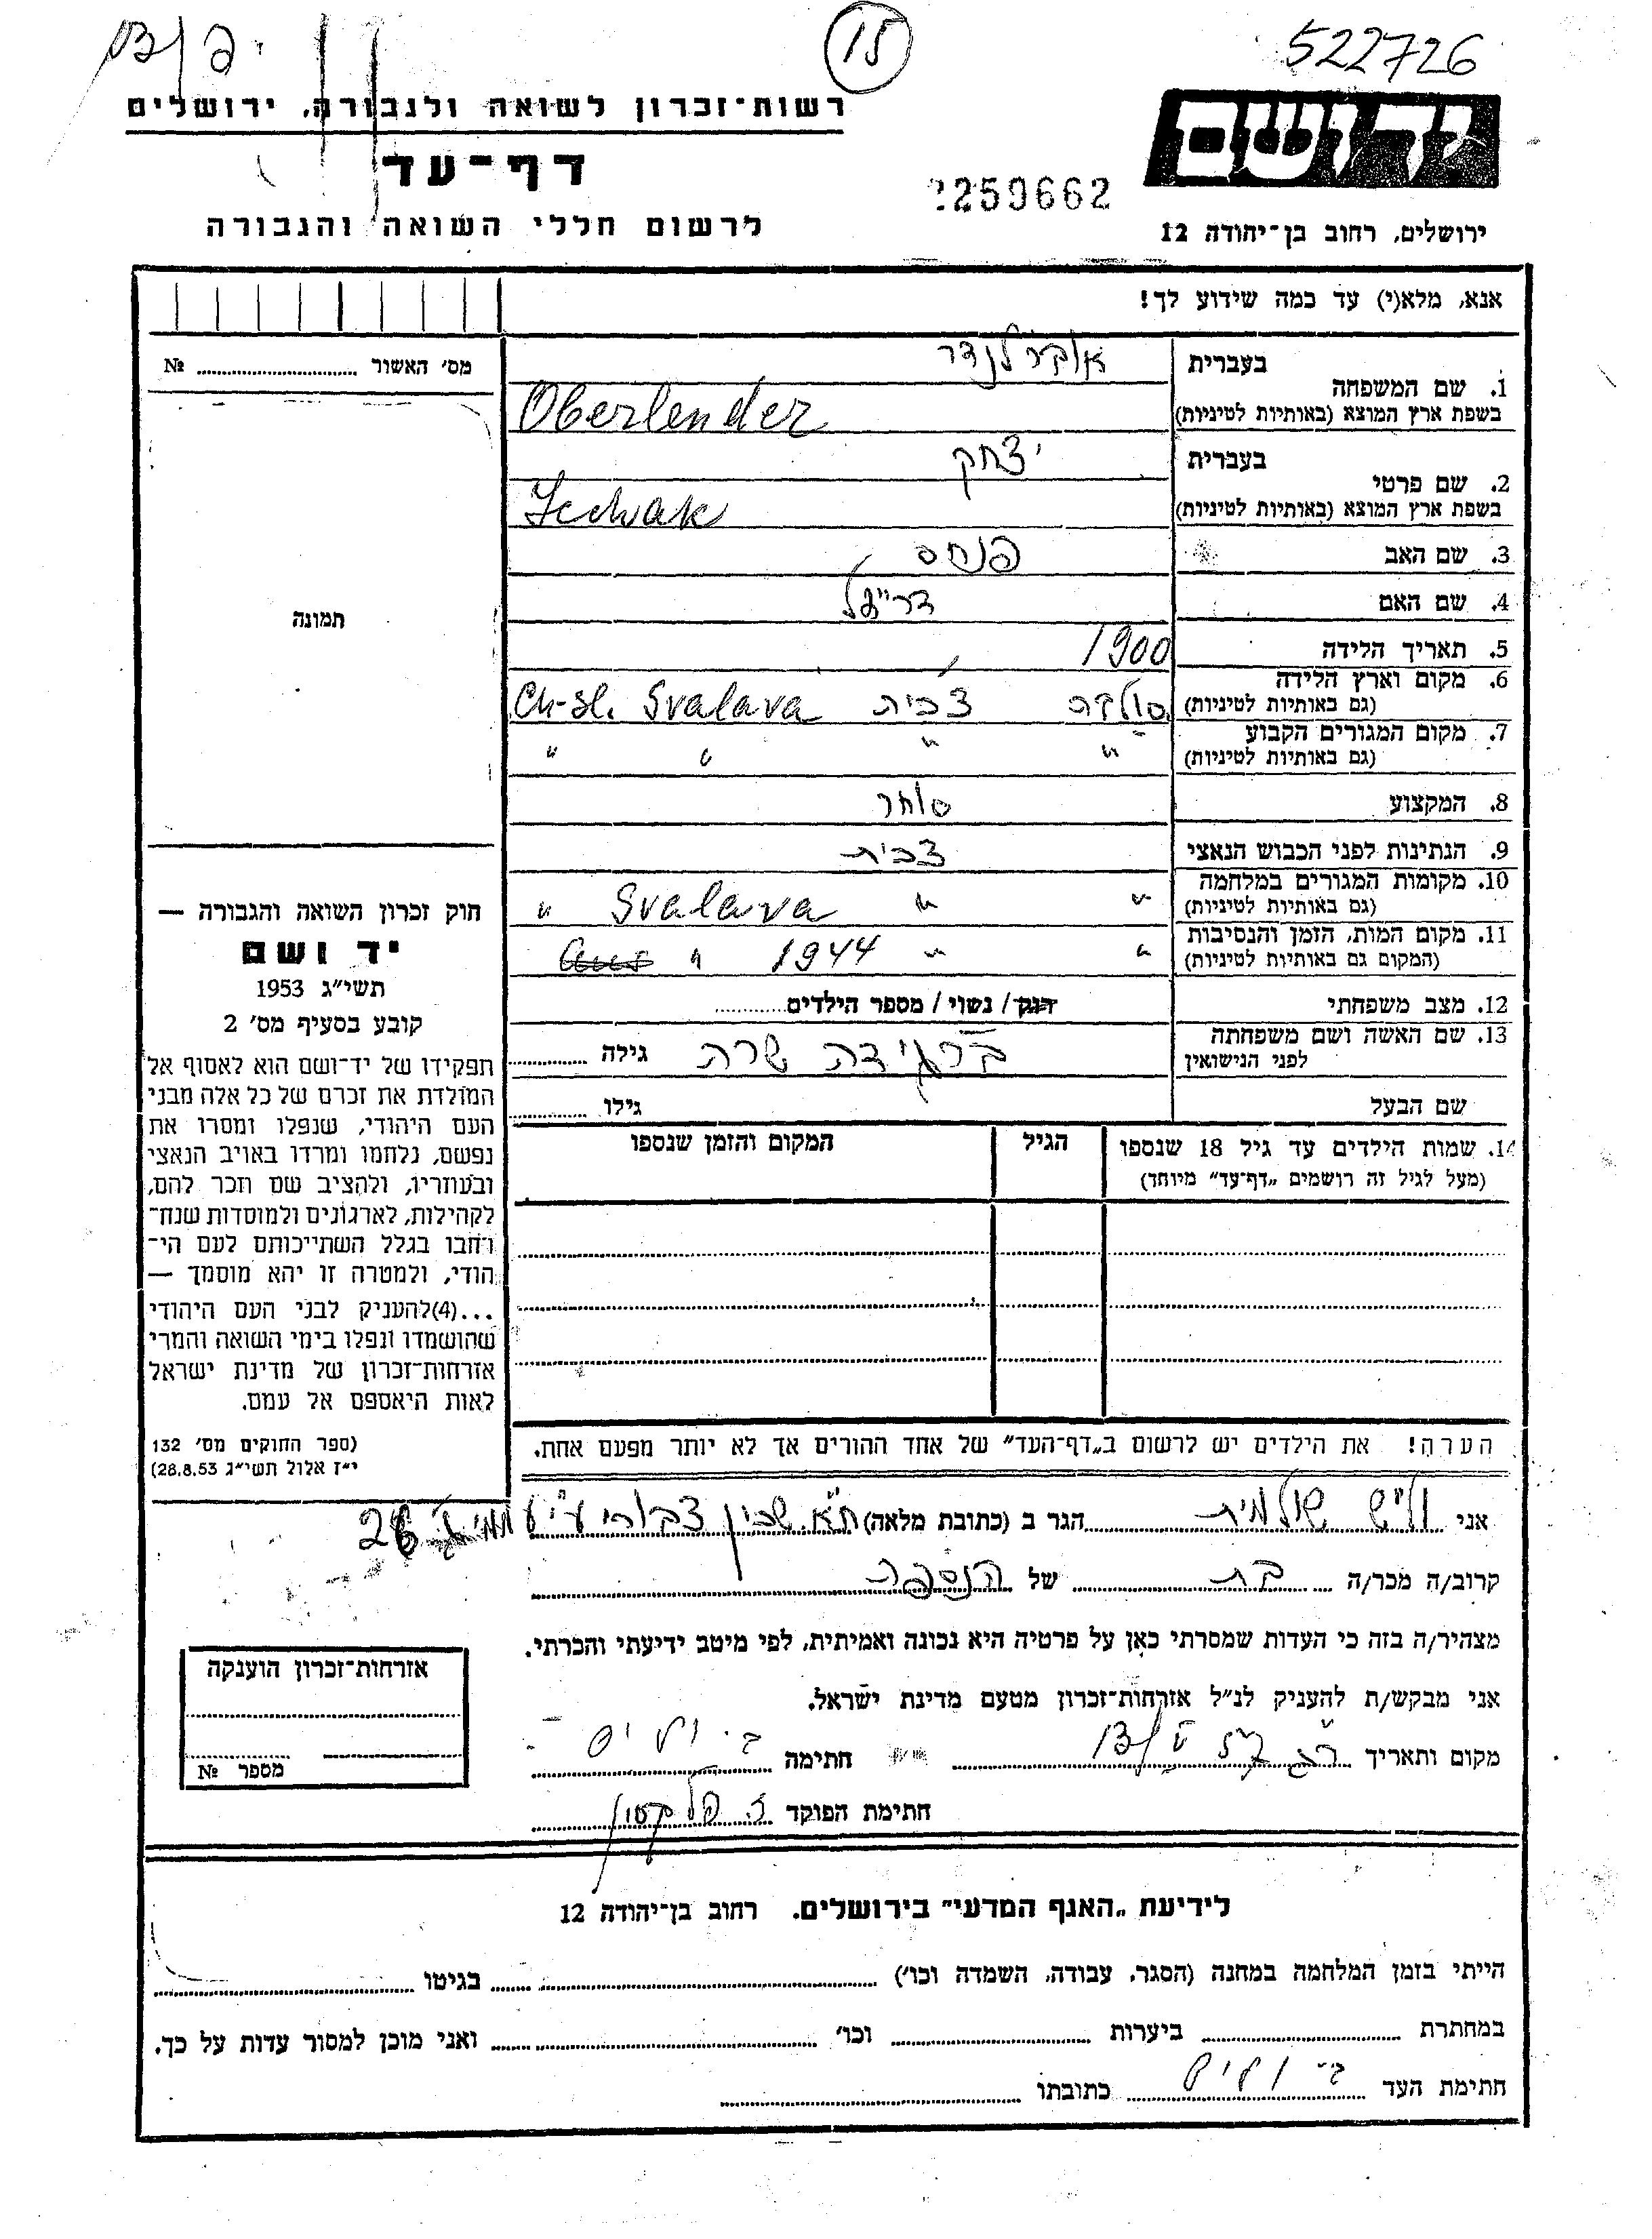 15
522726
רשות־זכרון לשואה ולגבורה, ירושלים
יד ושם
דף־עד
259662
לרשום חללי השואה והגבורה
ירושלים, רחוב בן־יהודה 12
אנא, מלא(י) עד כמה שידוע לך!
מס׳ האשור ........ №
תמונה
1. שם המשפחה
בעברית אוברלנדר
בשפת ארץ המוצא (באותיות לטיניות) Oberlender
2. שם פרטי
בעברית יצחק
בשפת ארץ המוצא (באותיות לטיניות) Jechak
3. שם האב פנחס
4. שם האם
5. תאריך הלידה 1900
6. מקום וארץ הלידה
(גם באותיות לטיניות) סולבה צכית Svalava Ch-sl.
7. מקום המגורים הקבוע
(גם באותיות לטיניות) " " " "
8. המקצוע סוחר
9. הנתינות לפני הכבוש הנאצי צכית
10. מקומות המגורים במלחמה
(גם באותיות לטיניות) " " Svalava "
11. מקום המות, הזמן והנסיבות
(המקום גם באותיות לטיניות) " " 1944 "
12. מצב משפחתי רווק / נשוי / מספר הילדים........
13. שם האשה ושם משפחתה
לפני הנישואין שרה גילה ........
שם הבעל גילו ........
14. שמות הילדים עד גיל 18 שנספו
(מעל לגיל זה רושמים „דף־עד" מיוחד)
הגיל
המקום והזמן שנספו
הערה! את הילדים יש לרשום ב„דף־העד" של אחד ההורים אך לא יותר מפעם אחת.
חוק זכרון השואה והגבורה —
יד ושם
תשי״ג 1953
קובע בסעיף מס׳ 2
תפקידו של יד־ושם הוא לאסוף אל
המולדת את זכרם של כל אלה מבני
העם היהודי, שנפלו ומסרו את
נפשם, נלחמו ומרדו באויב הנאצי
ובעוזריו, ולהציב שם וזכר להם,
לקהילות, לארגונים ולמוסדות שנח־
רחבו בגלל השתייכותם לעם הי־
הודי, ולמטרה זו יהא מוסמך —
...(4)להעניק לבני העם היהודי
שהושמדו ונפלו בימי השואה והמרי
אזרחות־זכרון של מדינת ישראל
לאות היאספם אל עמם.
(ספר החוקים מס׳ 132
י״ז אלול תשי״ג 28.8.53)
אני וליש שולמית הגר ב (כתובת מלאה) ת״א שכון צבורי
קרוב/ה מכר/ה בת של הנספה
מצהיר/ה בזה כי העדות שמסרתי כאן על פרטיה היא נכונה ואמיתית, לפי מיטב ידיעתי והכרתי.
אני מבקש/ת להעניק לנ״ל אזרחות־זכרון מטעם מדינת ישראל.
מקום ותאריך חתימה
חתימת הפוקד
אזרחות־זכרון הוענקה
מספר №
לידיעת „האגף המדעי" בירושלים. רחוב בן־יהודה 12
הייתי בזמן המלחמה במחנה (הסגר, עבודה, השמדה וכו׳) ........ בגיטו ........
במחתרת ........ ביערות ........ וכו׳ ........ ואני מוכן למסור עדות על כך.
חתימת העד כתובתו ........